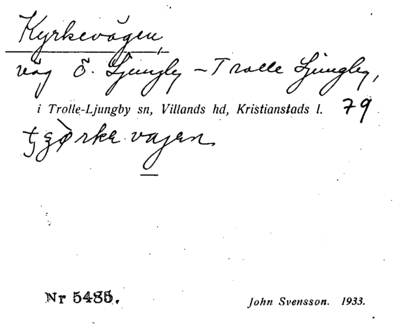 Kyrkevägen,
väg Ö. Ljungby – Trolle Ljungby,
i Trolle-Ljungby sn, Villands hd, Kristianstads l. 79
vajen
Nr 5485.
John Svensson. 1933.